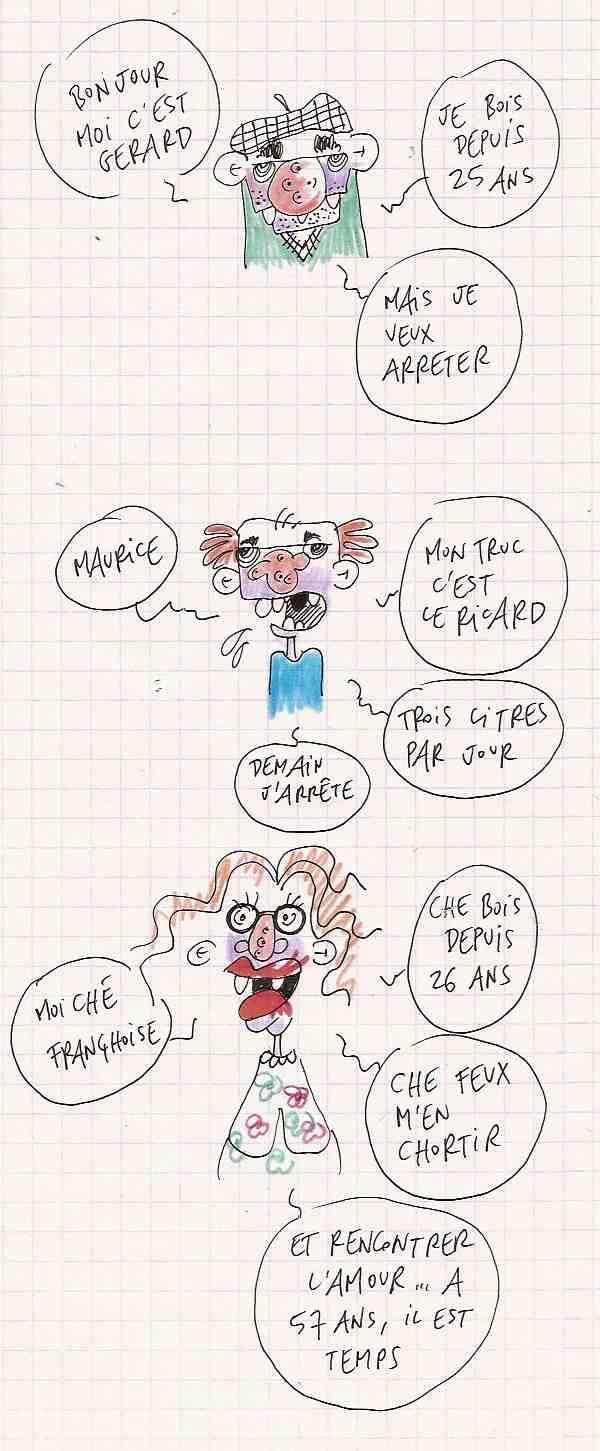 BONJOUR
MOI C'EST
GERARD
JE BOIS
DEPUIS
25 ANS
MAIS JE
VEUX
ARRETER
MAURICE
MON TRUC
C'EST
LE RICARD
TROIS LITRES
PAR JOUR
DEMAIN
J'ARRÊTE
MOI CHÉ
FRANÇHOISE
CHE BOIS
DEPUIS
26 ANS
CHE FEUX
M'EN
CHORTIR
ET RENCONTRER
L'AMOUR... A
57 ANS, IL EST
TEMPS